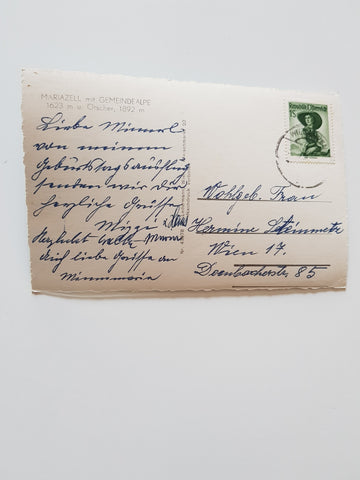 MARIAZELL mit GEMEINDEALPE
1623 m u. Ötscher, 1892 m
Liebe Minnerl
von meinem
Geburtstagsausflug
senten wir dir
herzliche Grüsse
Mizzi
Herzlichst
Auch liebe Grüsse an
Minnimaria
Republik Österreich
Wohlgeb. Frau
Hermine Steinmetz
Wien 17.
Dornbacherstr 85